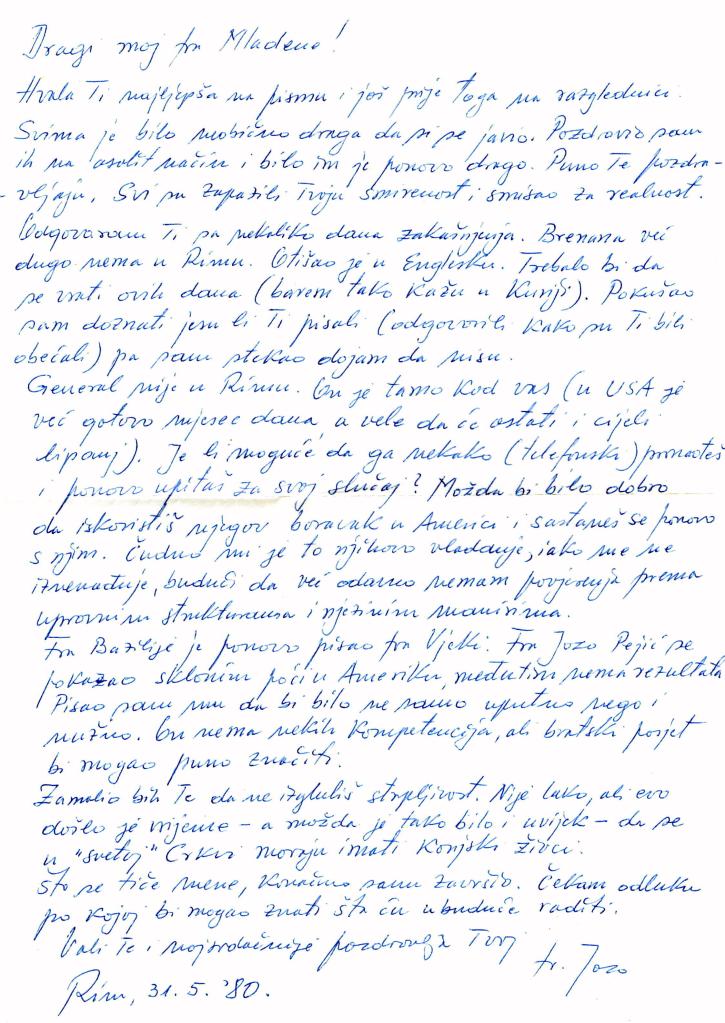 Dragi moj fra Mladene!
Hvala Ti najljepša na pismu i još prije toga na razglednici.
Svima je bilo neobično drago da si se javio. Pozdravio sam
ih na način i bilo im je ponovo drago. Puno Te pozdra-
- vljaju. Svi su zapazili Tvoju smirenost i smisao za realnost.
Odgovaram Ti sa nekoliko dana zakašnjenja. Brenana već
dugo nema u Rimu. Otišao je u Englesku. Trebalo bi da
se vrati ovih dana (barem tako kažu u Kuriji). Pokušao
sam doznati jesu li Ti pisali (odgovorili kako su Ti bili
obećali) pa sam stekao dojam da nisu.
General nije u Rimu. On je tamo kod vas (u USA je
već gotovo mjesec dana, a vele da će ostati i cijeli
lipanj). Je li moguće da ga nekako (telefonski) pronađeš
i ponovo upitaš za svoj slučaj? Možda bi bilo dobro
da iskoristiš njegov boravak u Americi i sastaneš se ponovo
s njim. Čudno mi je to njihovo vladanje, iako me ne
iznenađuje, budući da već odavno nemam povjerenja prema
upravnim strukturama i njezinim manirima.
Fra Bazilije je ponovo pisao fra Vjeki. Fra Jozo Pejić se
pokazao sklonim poći u Ameriku, međutim nema rezultata
Pisao sam mu da bi bilo ne samo uputno nego i
nužno. On nema nekih kompetencija, ali bratski posjet
bi mogao puno značiti.
Zamolio bih Te da ne izgubiš strpljivost. Nije lako, ali evo
došlo je vrijeme - a možda je tako bilo i uvijek - da se
u "svetoj" Crkvi moraju imati konjski živci.
Što se tiče mene, konačno sam završio. Čekam odluku
po kojoj bi mogao znati šta ću ubuduće raditi.
Voli Te i najsrdačnije pozdravlja Tvoj
fr. Jozo
Rim, 31. 5. '80.